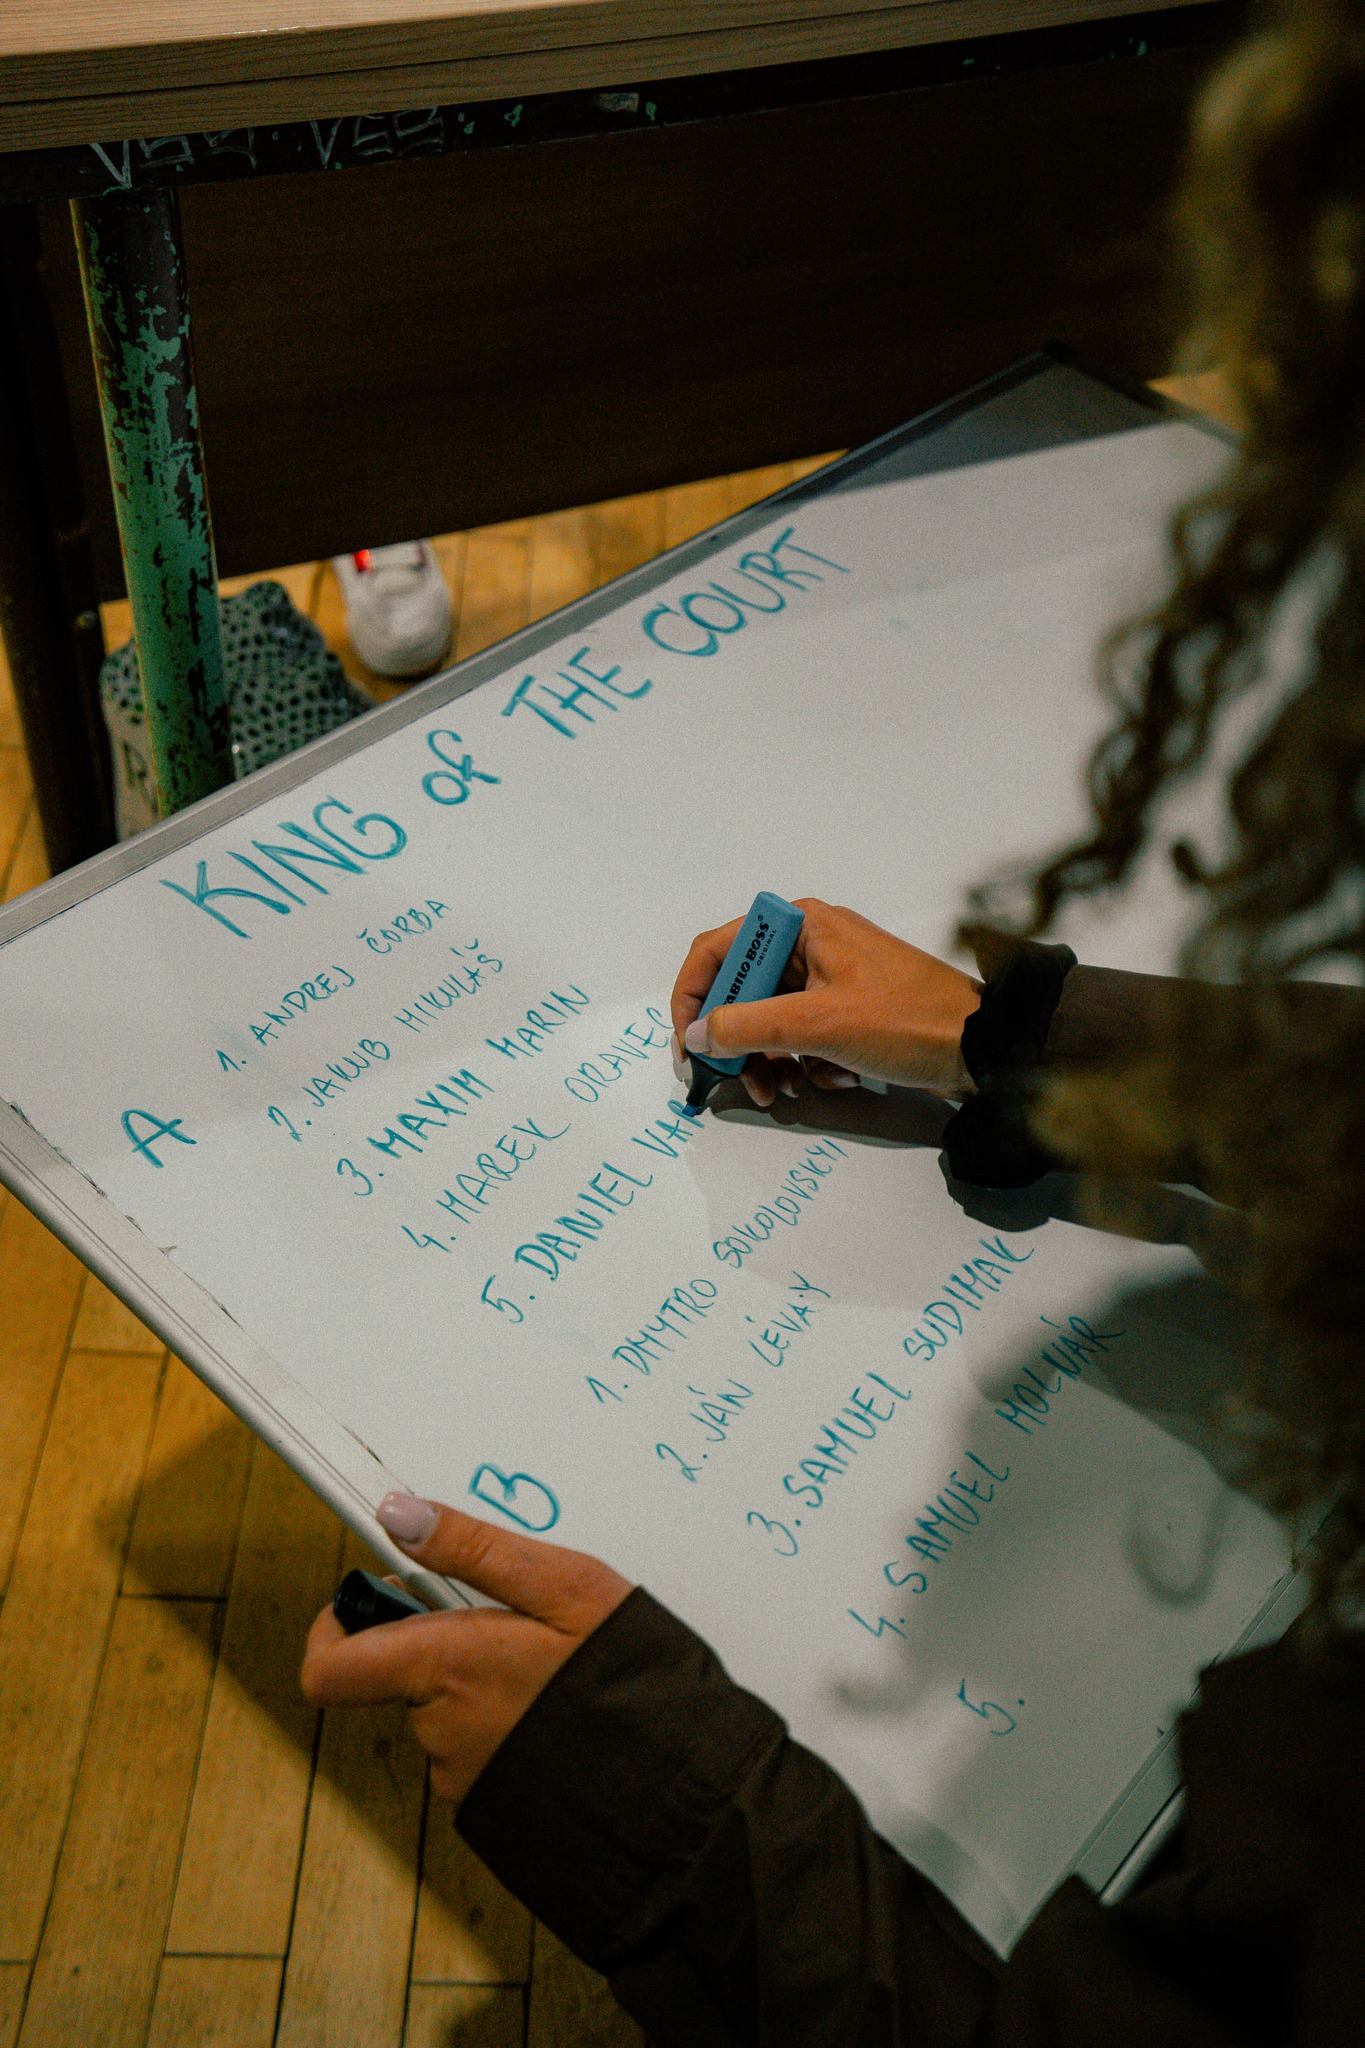 KING OF THE COURT
A
1. ANDREJ ČORBA
2. JAKUB MIKULÁŠ
3. MAXIM MARIN
4. MAREK ORAVEC
5. DANIEL VAR
B
1. DMYTRO SOKOLOVSKYI
2. JÁN LÉVAY
3. SAMUEL SUDIMAK
4. SAMUEL MOLNÁR
5.
BOSS®
ORIGINAL